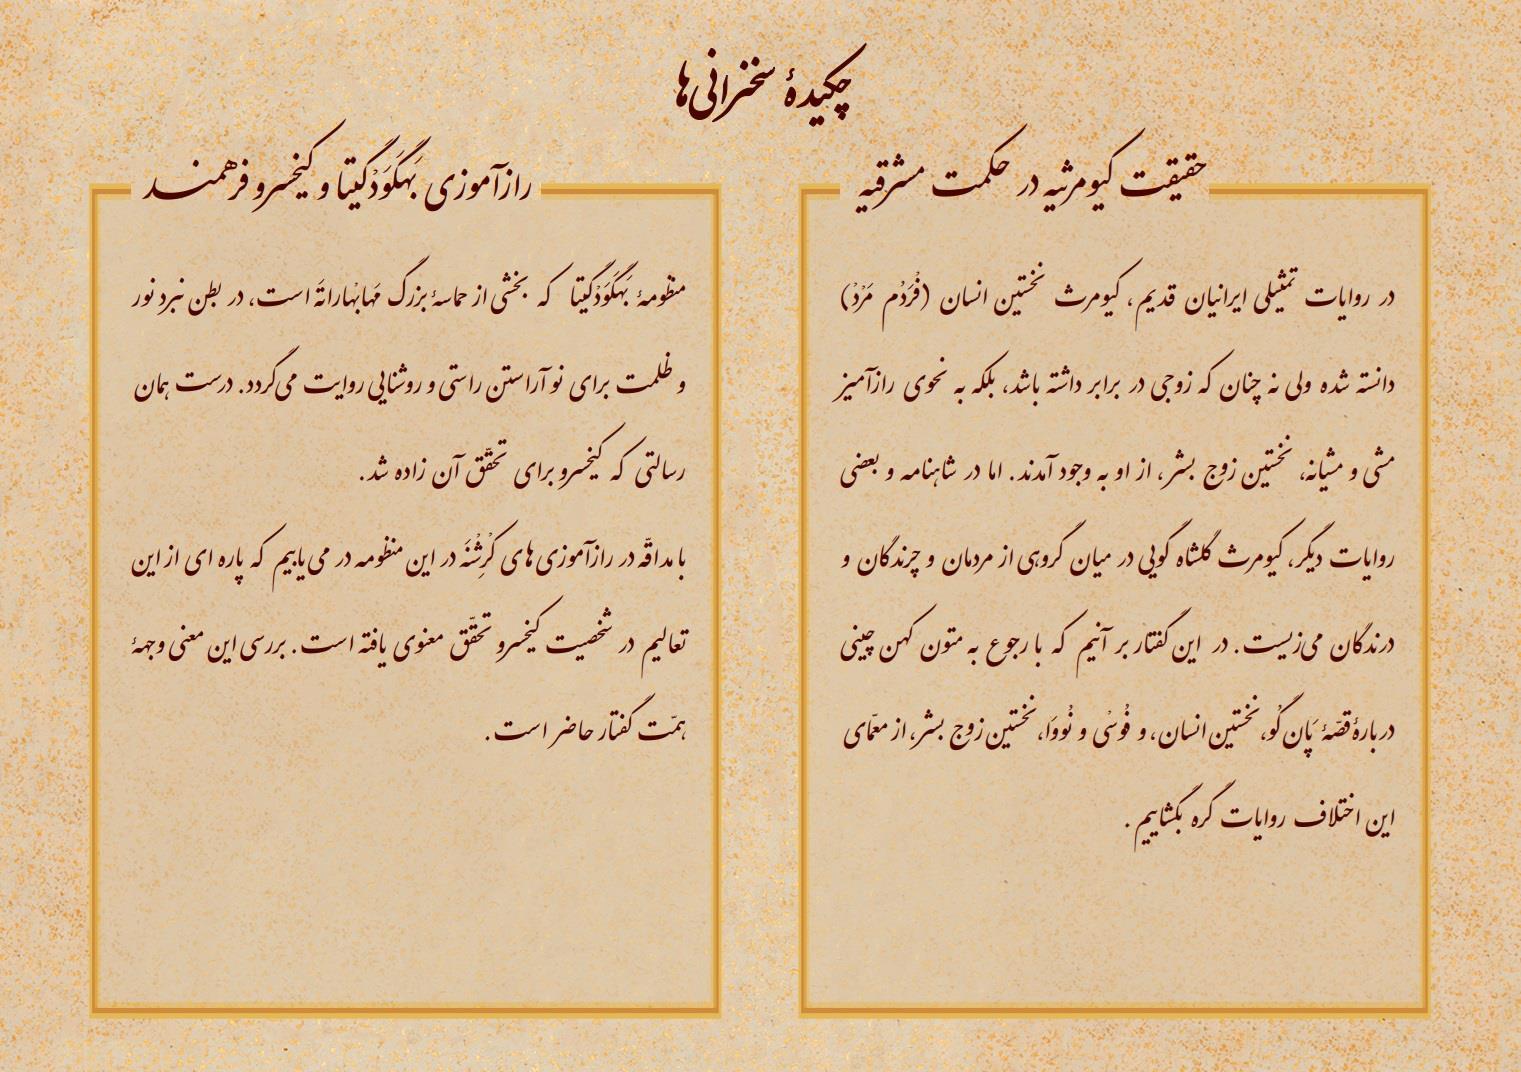 چکیدهٔ سخنرانی‌ها
حقیقت کیومرثیه در حکمت مشرقیه
در روایات تمثیلی ایرانیان قدیم، کیومرث نخستین انسان (فْرَدْم مَرْدْ)
دانسته شده ولی نه چنان که زوجی در برابر داشته باشد، بلکه به نحوی رازآمیز
مشی و مشیانه، نخستین زوج بشر، از او به وجود آمدند. اما در شاهنامه و بعضی
روایات دیگر، کیومرث گلشاه گویی در میان گروهی از مردمان و چرندگان و
درندگان می‌زیست. در این گفتار بر آنیم که با رجوع به متون کهن چینی
دربارهٔ قصّهٔ پان گو، نخستین انسان، و فْوسْی و نْووَا، نخستین زوج بشر، از معمّای
این اختلاف روایات گره بگشاییم.
رازآموزی بَهگَوَدْگیتا و کیخسرو فرهمند
منظومهٔ بَهگَوَدْگیتا که بخشی از حماسهٔ بزرگ مَهابْهاراتَهٔ است، در بطن نبرد نور
و ظلمت برای نو آراستن راستی و روشنایی روایت می‌گردد. درست همان
رسالتی که کیخسرو برای تحقّق آن زاده شد.
با مداقّه در رازآموزی‌های کْرِشْنَه در این منظومه در می‌یابیم که پاره ای از این
تعالیم در شخصیت کیخسرو تحقّق معنوی یافته است. بررسی این معنی وجههٔ
همّت گفتار حاضر است.